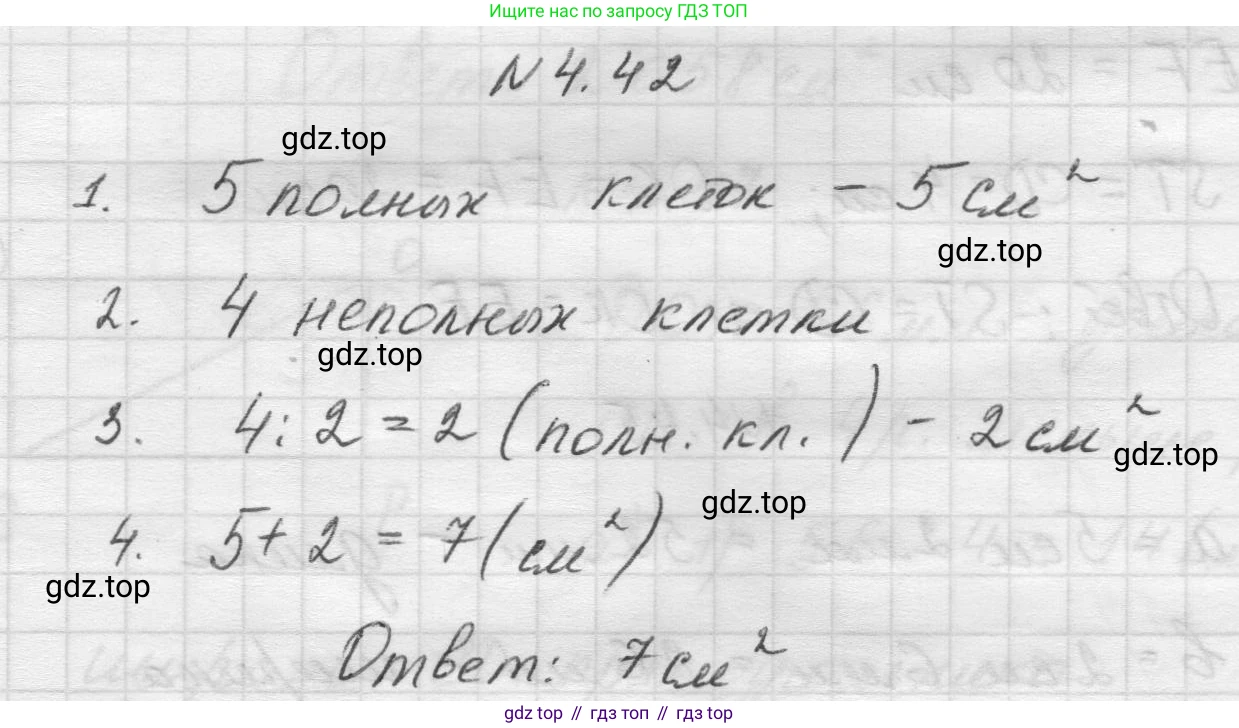 Ищите нас по запросу ГДЗ ТОП
N 4.42
gdz.top
1. 5 полных клеток - 5 см²
gdz.top
2. 4 неполных клетки
gdz.top
3. 4 : 2 = 2 (полн. кл.) - 2 см²
gdz.top
gdz.top
4. 5 + 2 = 7 (см²)
gdz.top
Ответ: 7 см²
gdz top // гдз топ // гдз top